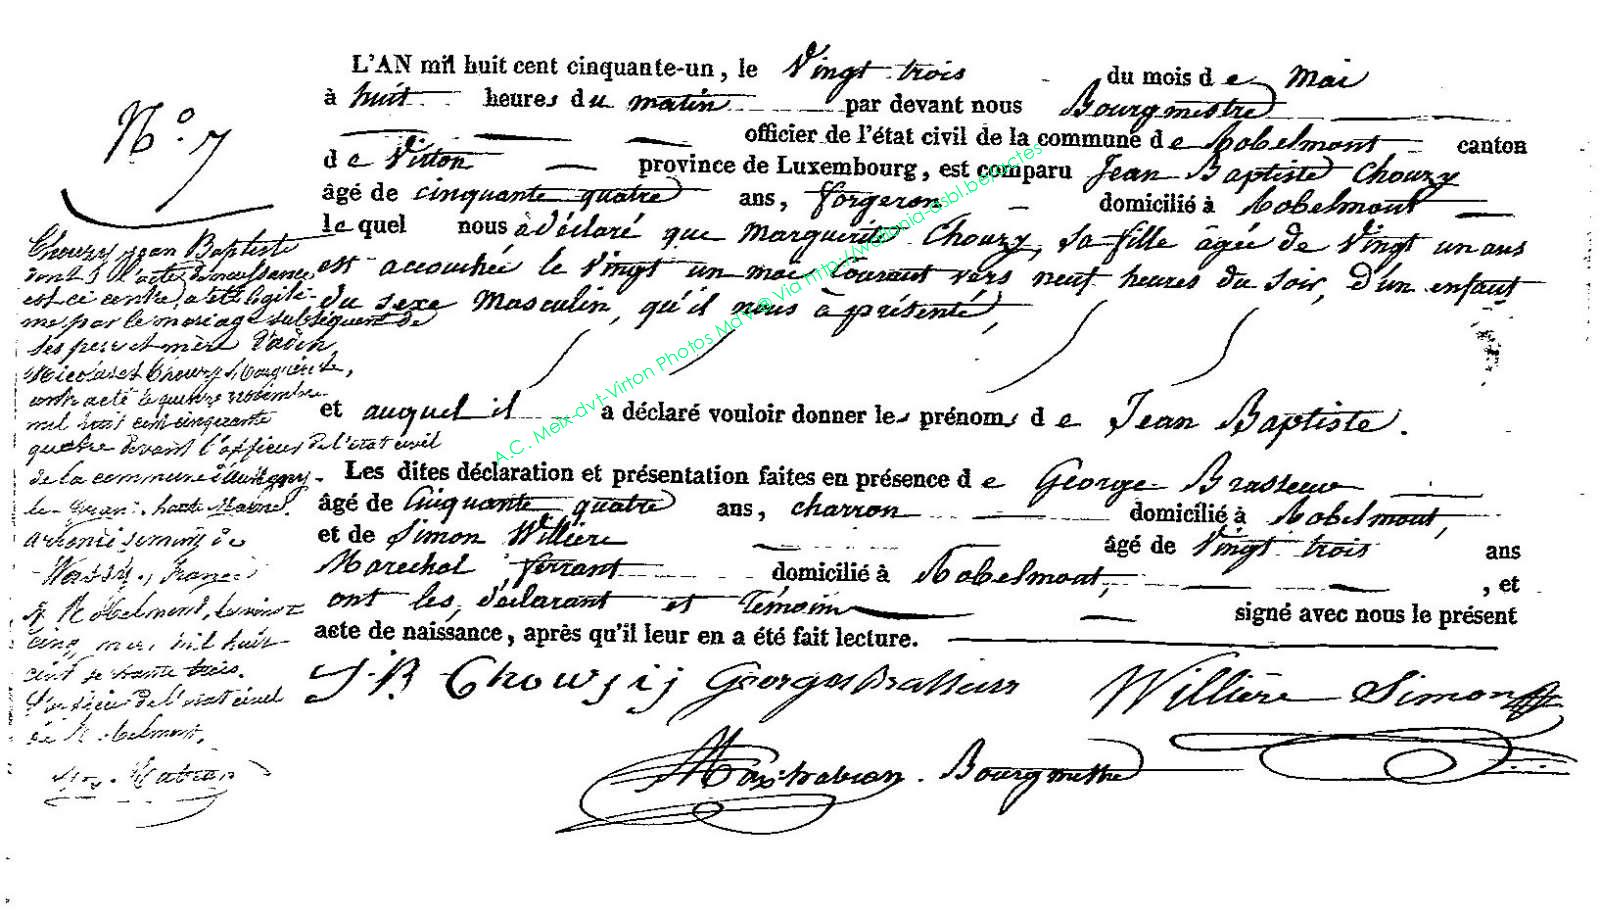 L'AN mil huit cent cinquante-un, le Vingt trois du mois d e Mai
à huit heures du matin par devant nous Bourgmestre
officier de l'état civil de la commune d e Robelmont canton
d e Virton province de Luxembourg, est comparu Jean Baptiste Chouzy
âgé de cinquante quatre ans, forgeron domicilié à Robelmont
le quel nous à déclaré que Marguérite Chouzy, sa fille âgée de Vingt un ans
est accouchée le Vingt un mai courant vers neuf heures du soir, d'un enfant
du sexe Masculin, qu'il nous à présenté,
et auquel il a déclaré vouloir donner les prénoms d e Jean Baptiste.
Les dites déclaration et présentation faites en présence d e George Brasseur
âgé de Cinquante quatre ans, charron domicilié à Robelmont,
et de Simon Willière âgé de Vingt trois ans
Marechal ferrant domicilié à Robelmont, , et
ont les, déclarant et Témoin signé avec nous le présent
acte de naissance, après qu'il leur en a été fait lecture.
J.B Chouzy Georges Brasseur Willière Simon
Bourgmestre
N° 7
Chouzy jean Baptiste
dont l'acte de naissance
est ci contre, a été légiti-
me par le mariage subséquent de
ses père et mère
Nicolas et Chouzy Marguérite,
contracté le quinze novembre
mil huit cent cinquante
quatre devant l'officier de l'état civil
de la commune d'
le haute Marne
arrondissement de
Wassy, France
à Robelmont, le vingt
cinq mil huit
cent soixante trois.
L'officier de l'état civil
de Robelmont.
A.C. Meix-dvt-Virton Photos MdV@ Via http://wallonia-asbl.be/actes